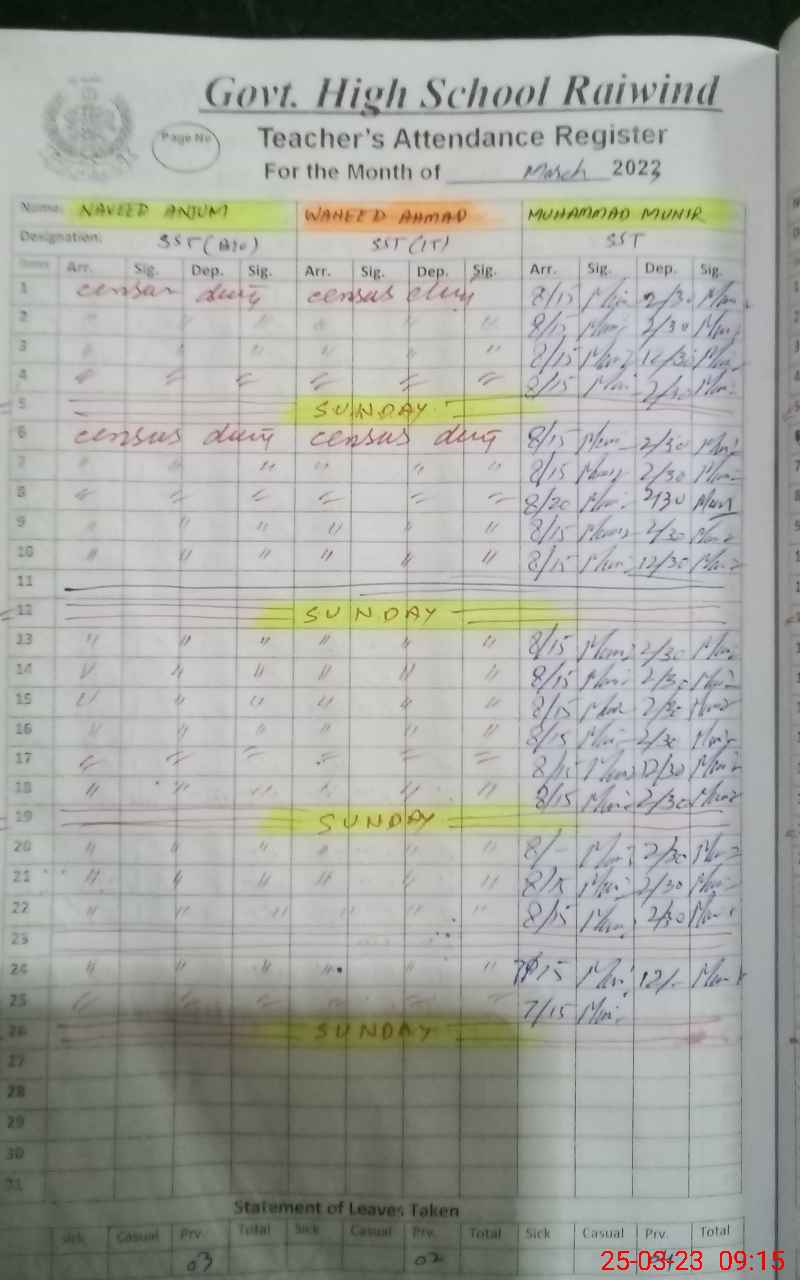 Govt. High School Raiwind
Page No
Teacher's Attendance Register
For the Month of March 2023
Name: NAVEED ANJUM WAHEED AHMAD MUHAMMAD MUNIR
Designation: SST (Bio) SST (IT) SST
Dates Arr. Sig. Dep. Sig. Arr. Sig. Dep. Sig. Arr. Sig. Dep. Sig.
1 census duty census duty 8/15 2/30
2 " " " " " " 8/15 2/30
3 " " " " " " 8/15 12/30
4 " " " " " " 8/15 2/30
5 SUNDAY
6 census duty census duty 8/15 2/30
7 " " " " " " 8/15 2/30
8 " " " " " " 8/20 2/30
9 " " " " " " 8/15 2/30
10 " " " " " " 8/15 12/30
11
12 SUNDAY
13 " " " " " " 8/15 2/30
14 " " " " " " 8/15 2/30
15 " " " " " " 8/15 2/30
16 " " " " " " 8/15 2/30
17 " " " " " " 8/15 12/30
18 " " " " " " 8/15 2/30
19 SUNDAY
20 " " " " " " 8/- 2/30
21 " " " " " " 8/15 2/30
22 " " " " " " 8/15 2/30
23
24 " " " " " " 7/15 12/-
25 " " " " " " 7/15
26 SUNDAY
27
28
29
30
31
Statement of Leaves Taken
Sick Casual Prv. Total Sick Casual Prv. Total Sick Casual Prv. Total
03 02
25-03-23 09:15